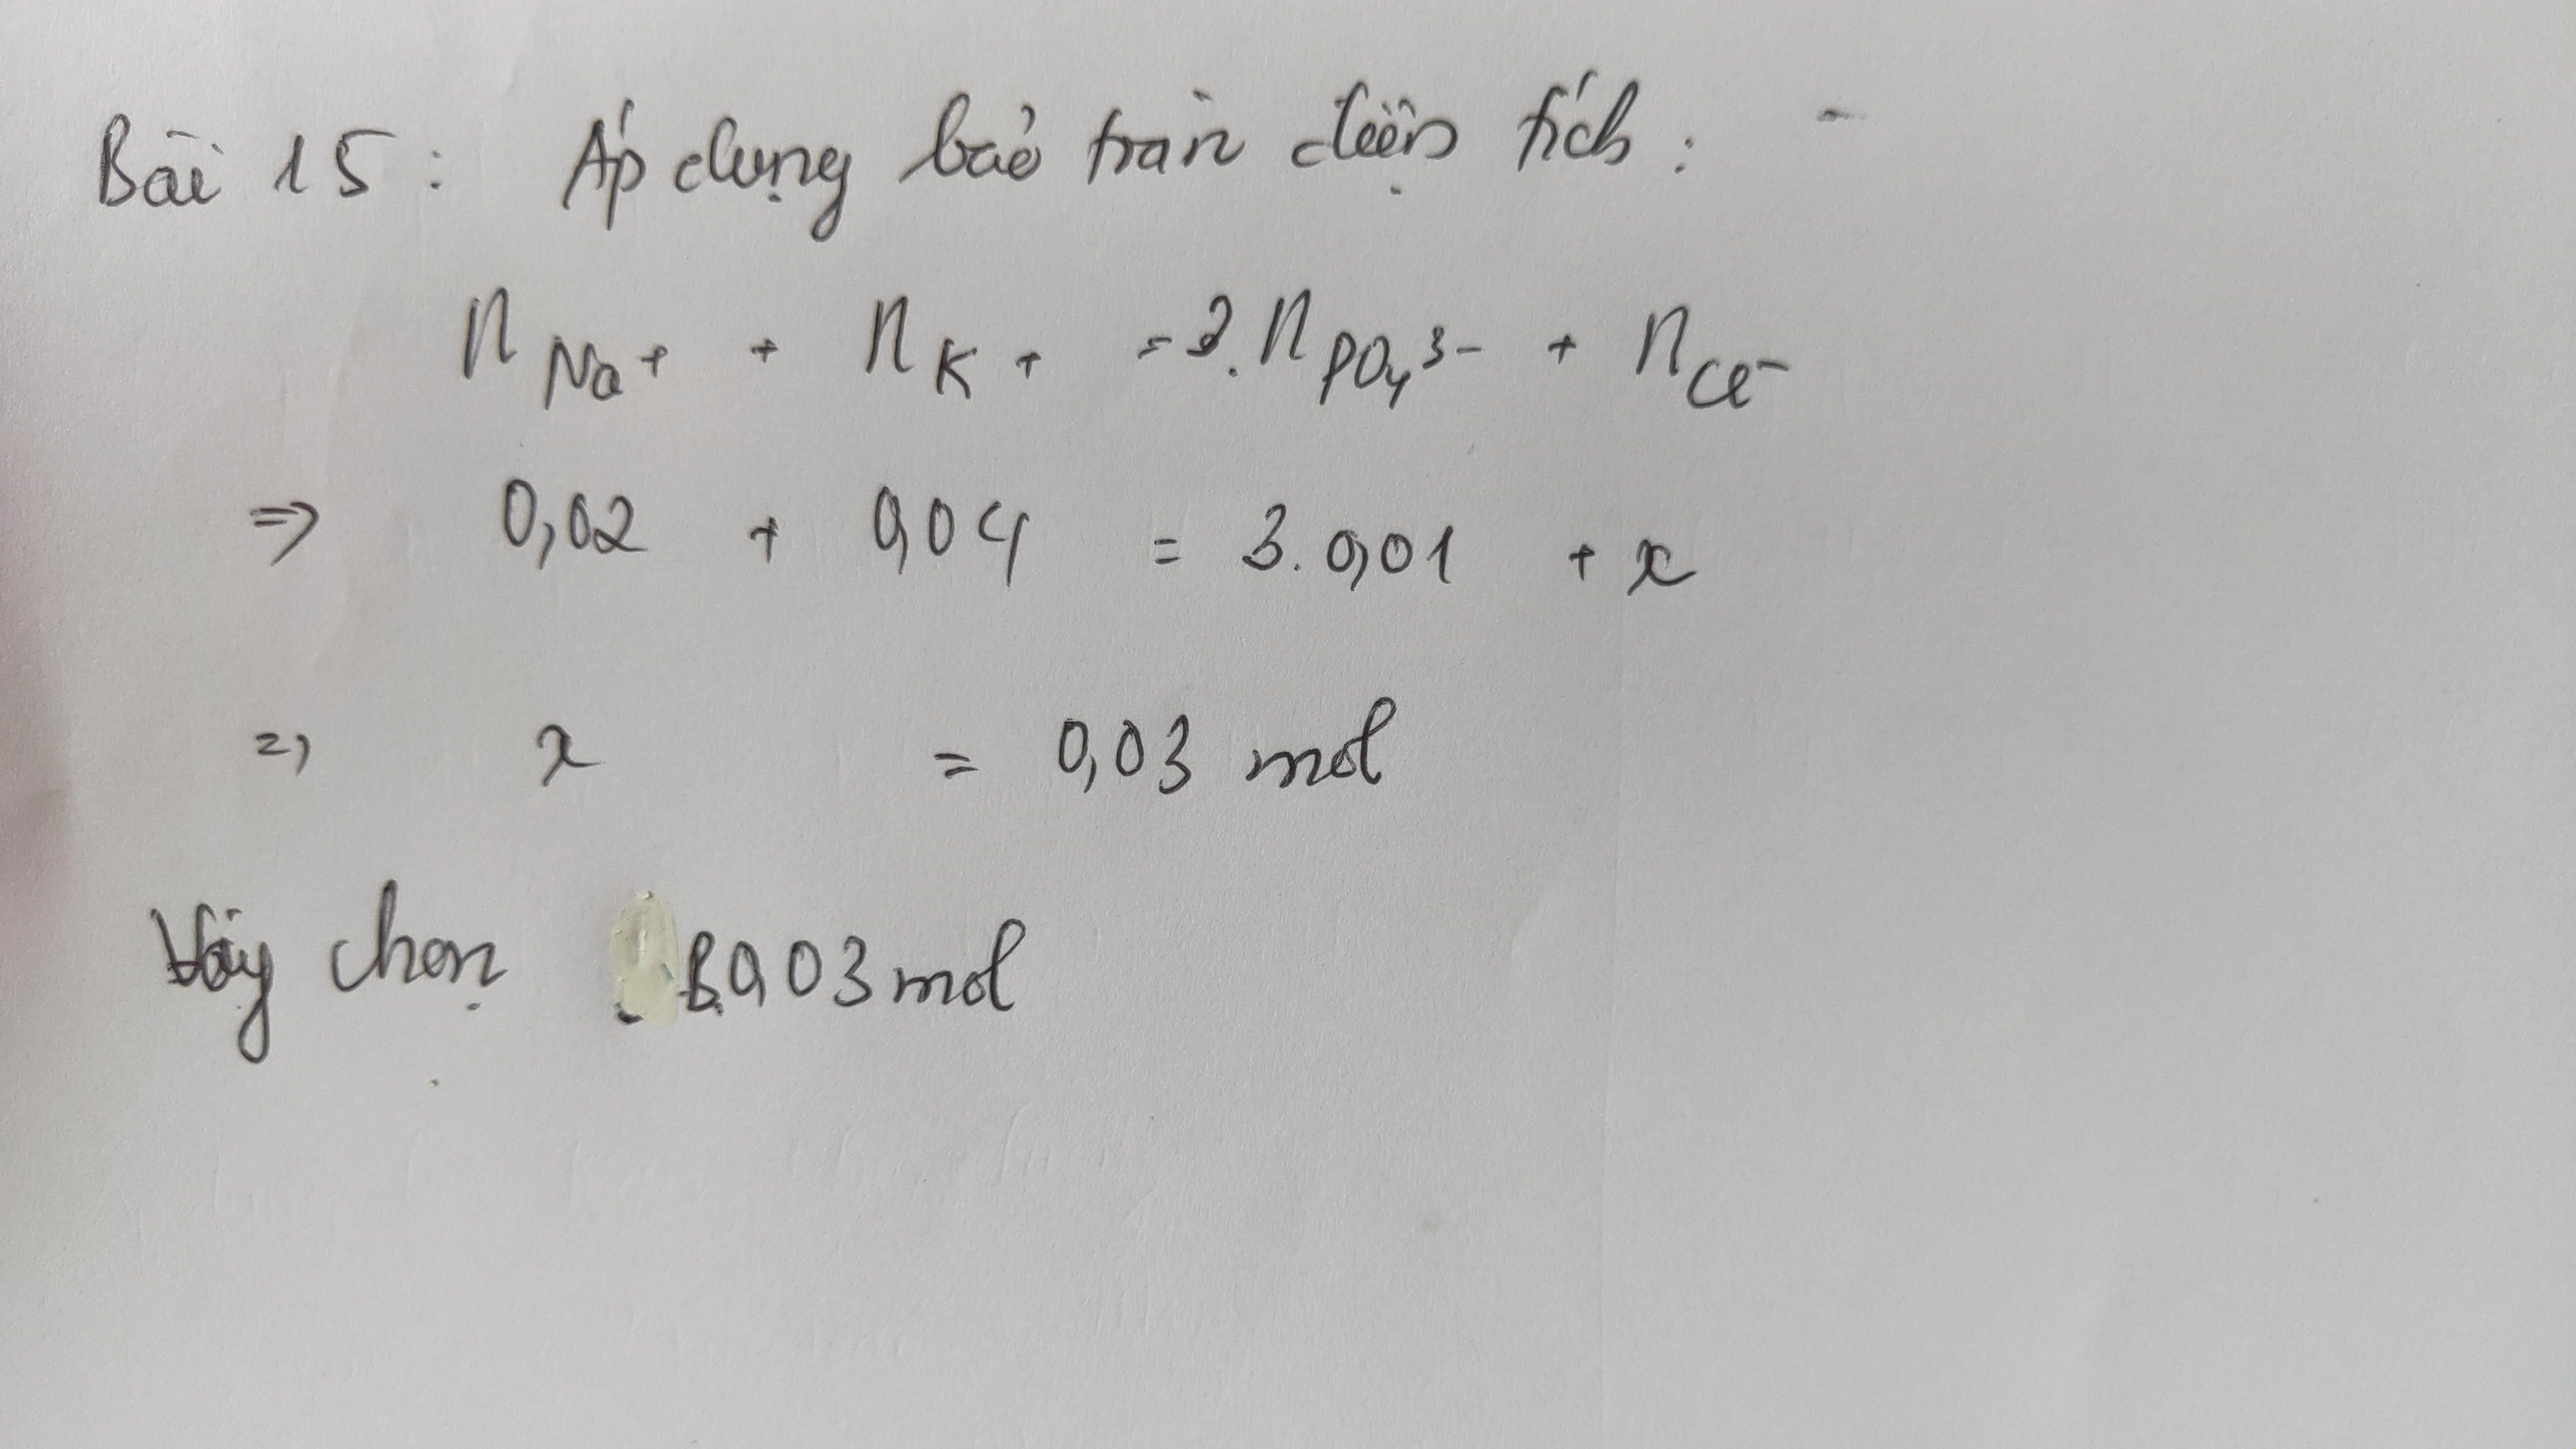 Bài 15: Áp dụng bảo tràn điện tích:
n Na+ + n K+ = 3. n PO₄³⁻ + n Cl⁻
⇒ 0,02 + 0,04 = 3. 0,01 + x
⇒ x = 0,03 mol
Vậy chọn B. 0,03 mol